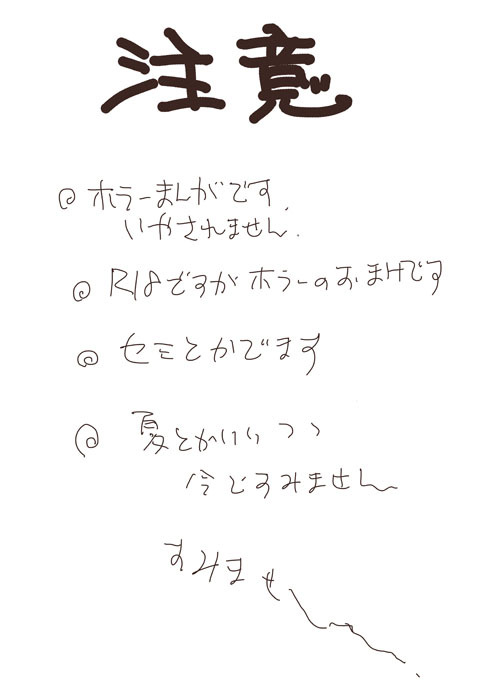 注意
◎ ホラーまんがです。
いやされません.
◎ R18ですがホラーのおまけです
◎ セミとかでます
◎ 夏とかいいつつ
今ですみません
すみません